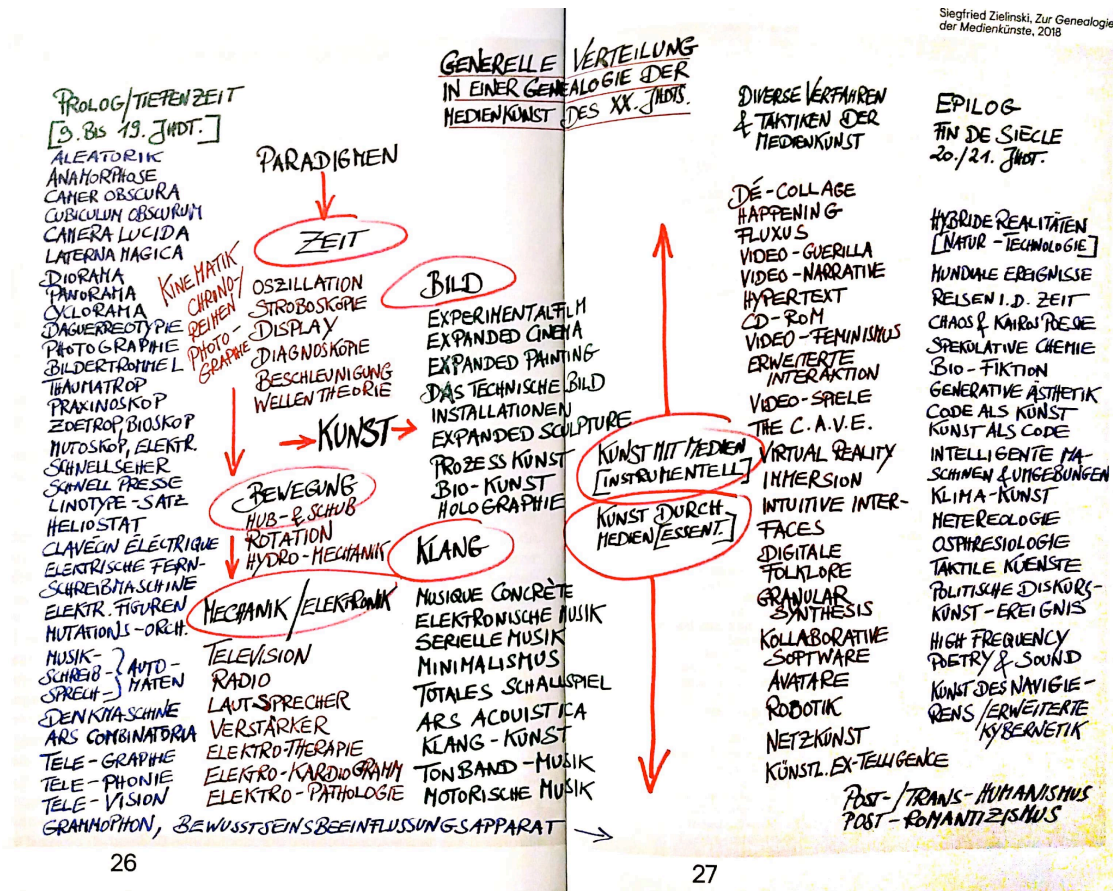 Siegfried Zielinski, Zur Genealogie
der Medienkünste, 2018
GENERELLE VERTEILUNG
IN EINER GENEALOGIE DER
MEDIENKUNST DES XX. JHDTS.
PROLOG/TIEFENZEIT
[9. BIS 19. JHDT.]
ALEATORIK
ANAMORPHOSE
CAMER OBSCURA
CUBICULUM OBSCURUM
CAMERA LUCIDA
LATERNA MAGICA
DIORAMA
PANORAMA
CYCLORAMA
DAGUERREOTYPIE
PHOTOGRAPHIE
BILDERTROMMEL
THAUMATROP
PRAXINOSKOP
ZOETROP, BIOSKOP
MUTOSKOP, ELEKTR.
SCHNELLSEHER
SCHNELL PRESSE
LINOTYPE-SATZ
HELIOSTAT
CLAVECIN ÉLÉCTRIQUE
ELEKTRISCHE FERN-
SCHREIBMASCHINE
ELEKTR. FIGUREN
MUTATIONS-ORCH.
MUSIK-
SCHREIB-
SPRECH-
AUTO-
MATEN
DENKMASCHINE
ARS COMBINATORIA
TELE-GRAPHIE
TELE-PHONIE
TELE-VISION
GRAMMOPHON, BEWUSSTSEINSBEEINFLUSSUNGSAPPARAT
PARADIGMEN
ZEIT
KINEMATIK
CHRONO-/
REIHEN
PHOTO-
GRAPHIE
OSZILLATION
STROBOSKOPIE
DISPLAY
DIAGNOSKOPIE
BESCHLEUNIGUNG
WELLENTHEORIE
KUNST
BEWEGUNG
HUB-& SCHUB
ROTATION
HYDRO-MECHANIK
MECHANIK/ELEKTRONIK
TELEVISION
RADIO
LAUTSPRECHER
VERSTÄRKER
ELEKTRO-THERAPIE
ELEKTRO-KARDIOGRAMM
ELEKTRO-PATHOLOGIE
BILD
EXPERIMENTALFILM
EXPANDED CINEMA
EXPANDED PAINTING
DAS TECHNISCHE BILD
INSTALLATIONEN
EXPANDED SCULPTURE
PROZESS KUNST
BIO-KUNST
HOLOGRAPHIE
KLANG
MUSIQUE CONCRÈTE
ELEKTRONISCHE MUSIK
SERIELLE MUSIK
MINIMALISMUS
TOTALES SCHALLSPIEL
ARS ACOUISTICA
KLANG-KUNST
TONBAND-MUSIK
MOTORISCHE MUSIK
KUNST MIT MEDIEN
[INSTRUMENTELL]
KUNST DURCH
MEDIEN [ESSENT.]
DIVERSE VERFAHREN
& TAKTIKEN DER
MEDIENKUNST
DÉ-COLLAGE
HAPPENING
FLUXUS
VIDEO-GUERILLA
VIDEO-NARRATIVE
HYPERTEXT
CD-ROM
VIDEO-FEMINISMUS
ERWEITERTE
INTERAKTION
VIDEO-SPIELE
THE C.A.V.E.
VIRTUAL REALITY
IMMERSION
INTUITIVE INTER-
FACES
DIGITALE
FOLKLORE
GRANULAR
SYNTHESIS
KOLLABORATIVE
SOFTWARE
AVATARE
ROBOTIK
NETZKUNST
KÜNSTL. EX-TELLIGENCE
EPILOG
FIN DE SIÈCLE
20./21. JHDT.
HYBRIDE REALITÄTEN
[NATUR-TECHNOLOGIE]
MUNDIALE EREIGNISSE
REISEN I.D. ZEIT
CHAOS & KAIROS POESIE
SPEKULATIVE CHEMIE
BIO-FIKTION
GENERATIVE ÄSTHETIK
CODE ALS KUNST
KUNST ALS CODE
INTELLIGENTE MA-
SCHINEN & UMGEBUNGEN
KLIMA-KUNST
METEREOLOGIE
OSPHRESIOLOGIE
TAKTILE KUENSTE
POLITISCHE DISKURS-
KUNST-EREIGNIS
HIGH FREQUENCY
POETRY & SOUND
KUNST DES NAVIGIE-
RENS/ERWEITERTE
KYBERNETIK
POST-/TRANS-HUMANISMUS
POST-ROMANTIZISMUS
26
27